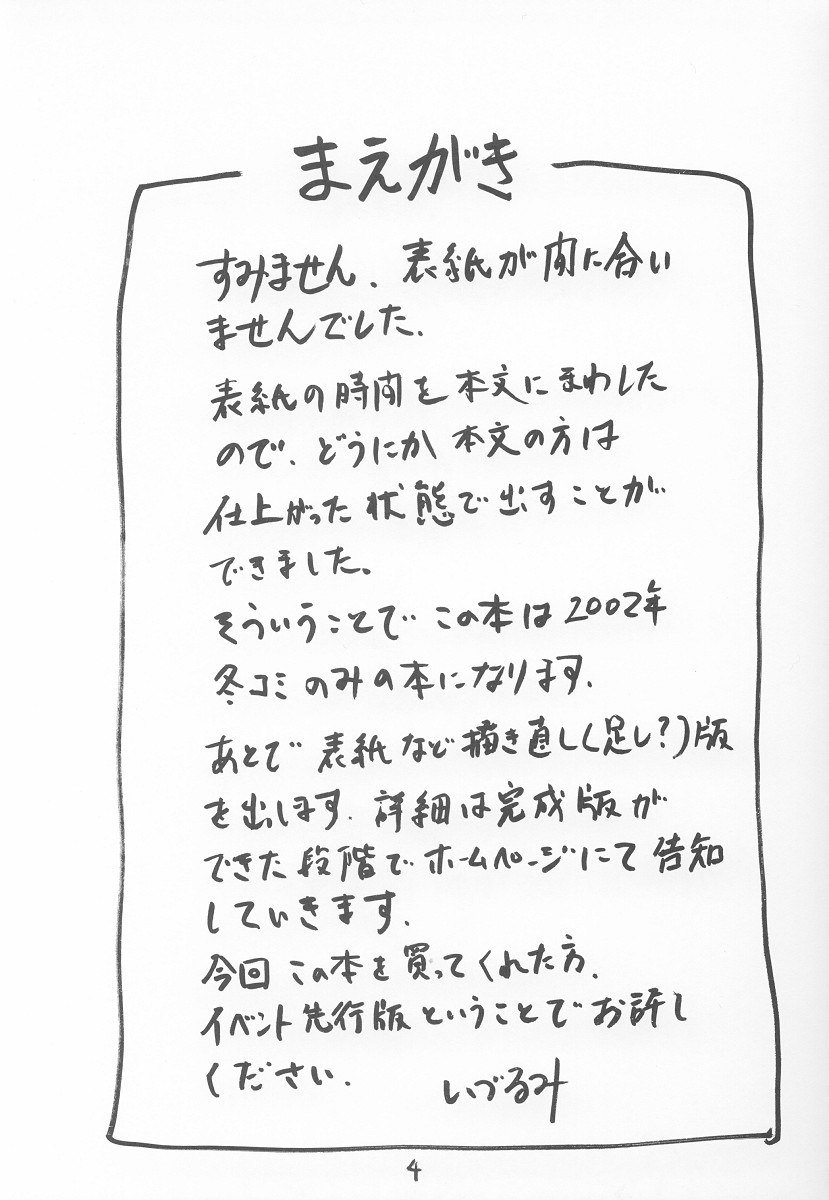 まえがき
すみません、表紙が間に合い
ませんでした、
表紙の時間を本文にまわした
ので、どうにか本文の方は
仕上がった状態で出すことが
できました。
そういうことでこの本は2002年
冬コミのみの本になります、
あとで表紙など描き直し(足し?)版
を出します、詳細は完成版が
できた段階でホームページにて告知
していきます、
今回この本を買ってくれた方、
イベント先行版ということでお許し
ください、
いづるみ
4